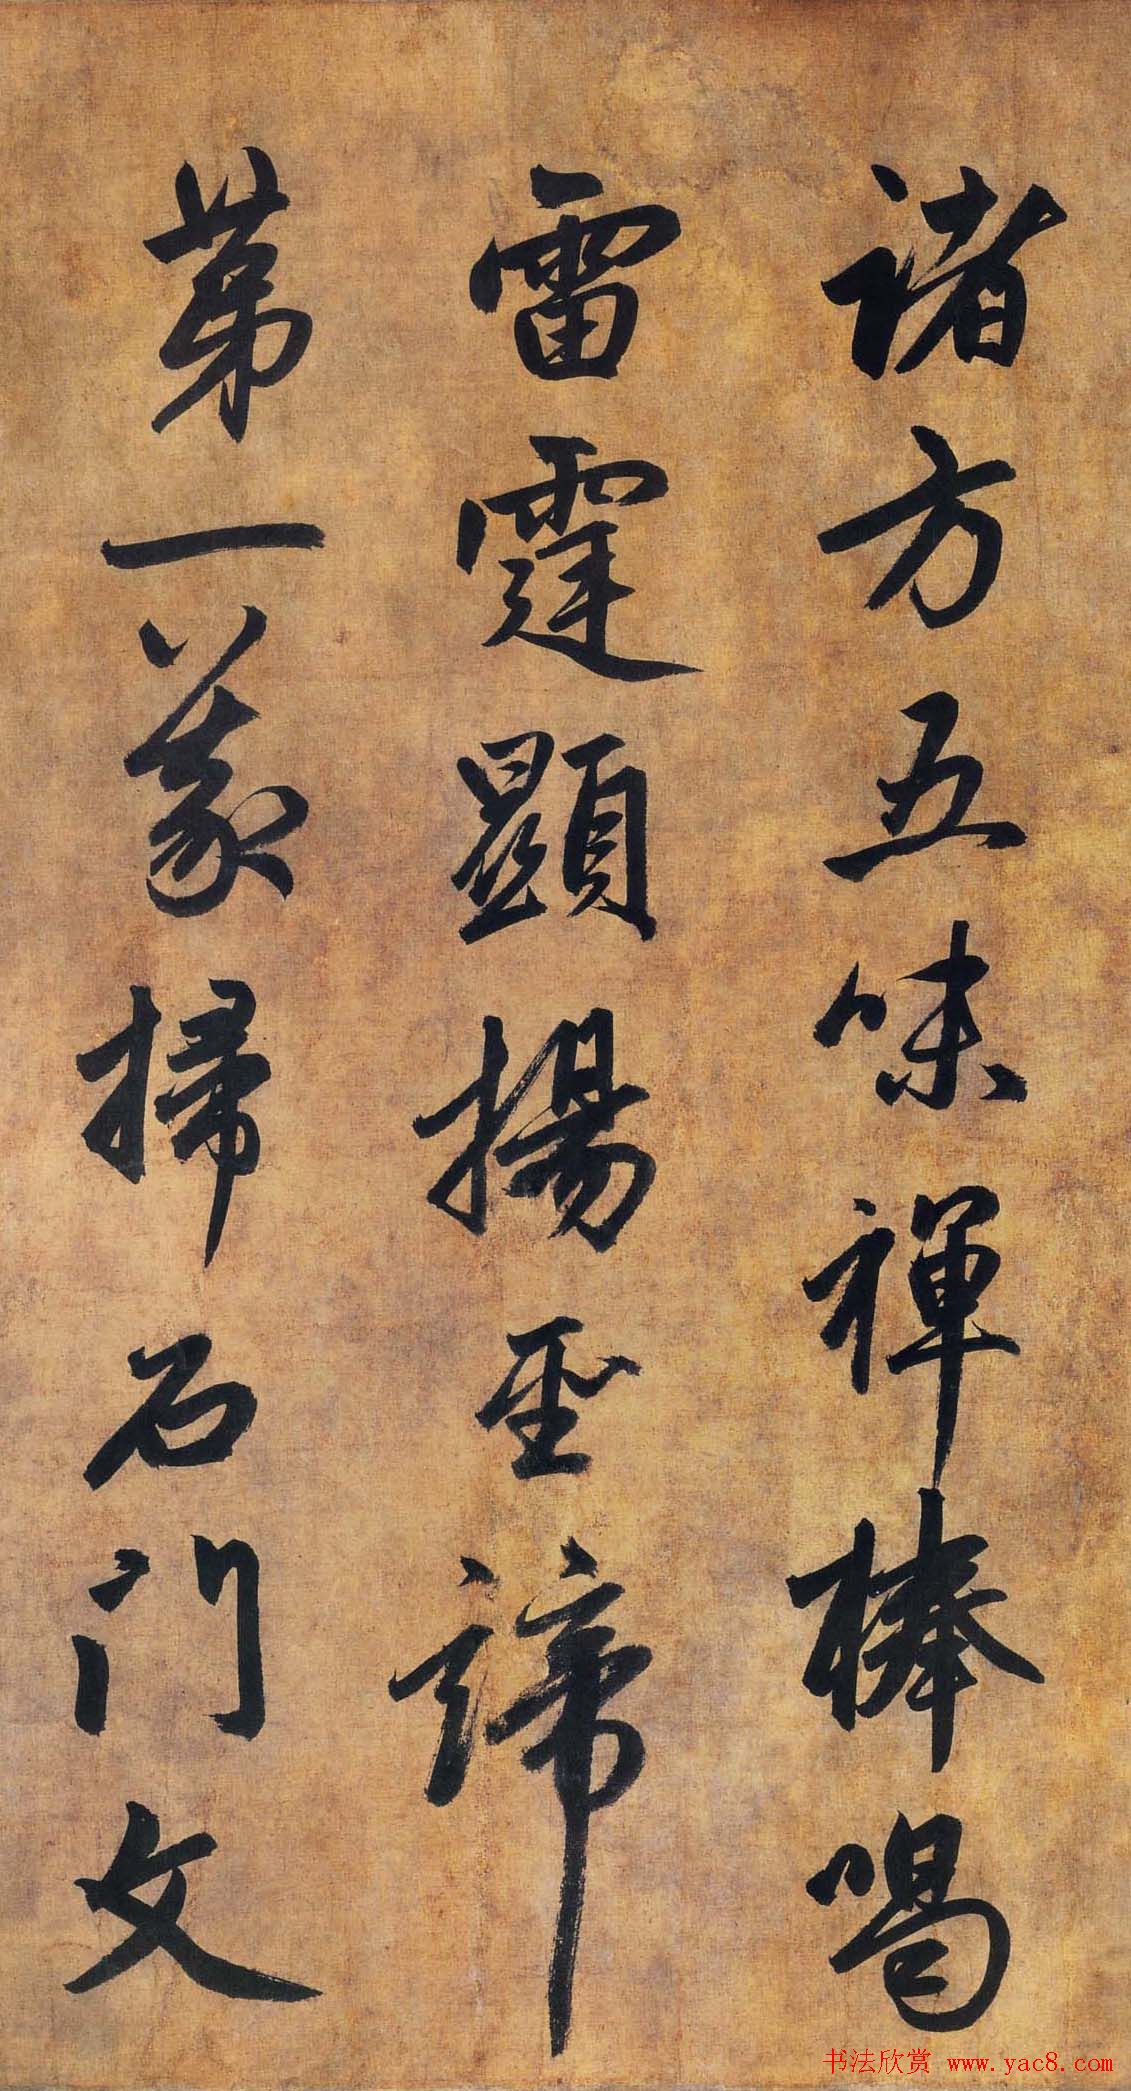 諸方五味禪棒喝
雷霆顯揚聖諦
第一義掃石門文
书法欣赏 www.yac8.com